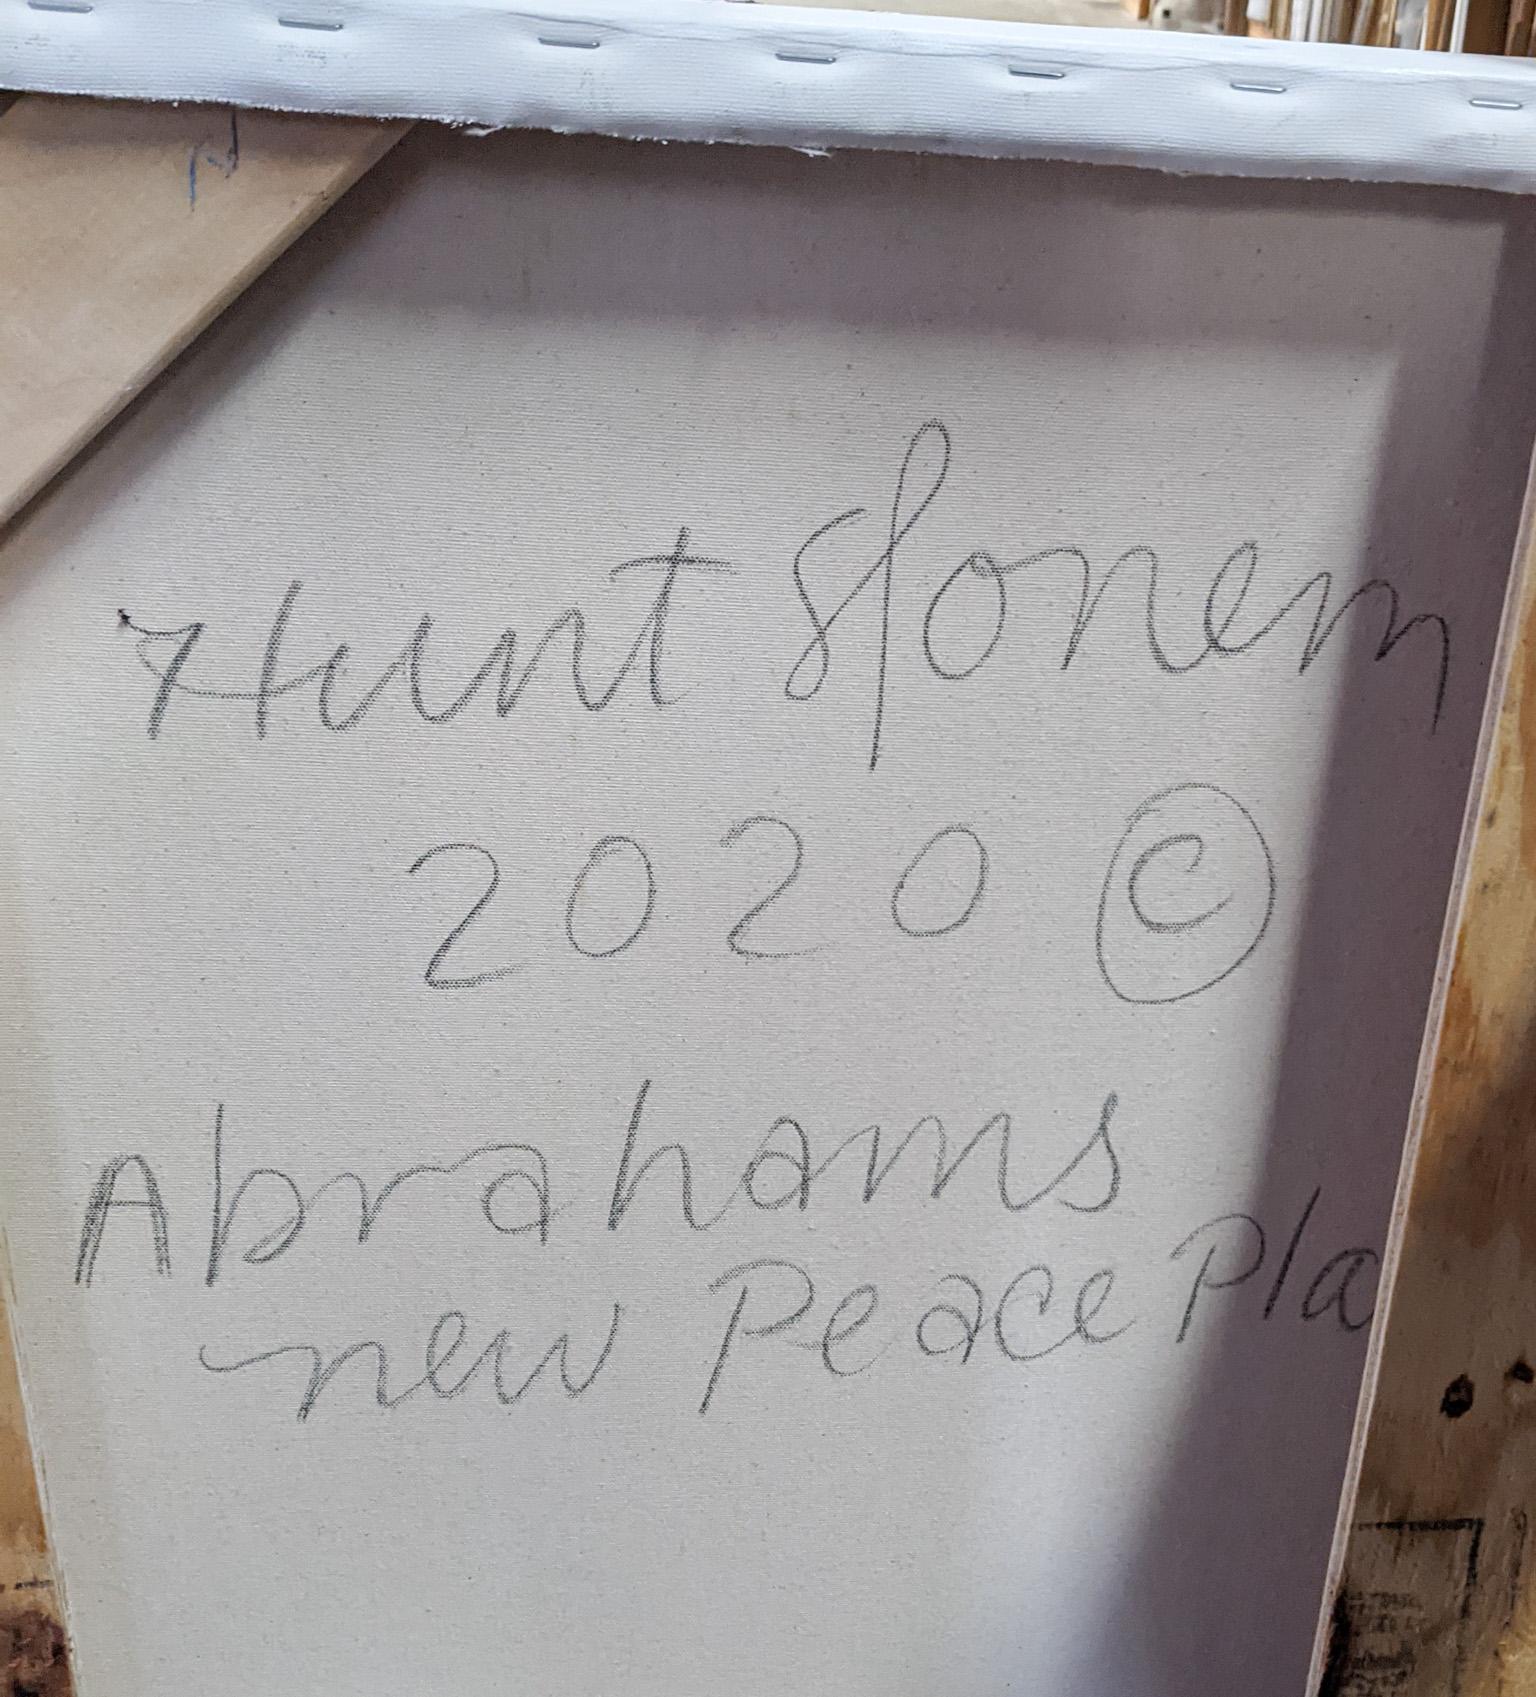 N
Hunt Slonem
2020 ©
Abrahams
new Peace Pla